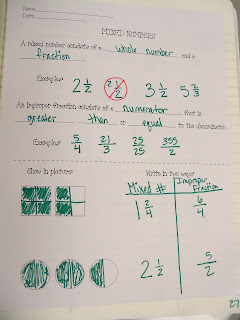 Name
Date
MIXED NUMBERS
A mixed number consists of a whole number and a
fraction.
Examples:
2 1/2 2 1/2 3 1/2 5 2/3
An improper fraction consists of a numerator that is
greater than or equal to the denominator.
Examples:
5/4 21/3 25/25 355/2
Show in pictures Write in two ways
Mixed # Improper Fraction
1 2/4 6/4
2 1/2 5/2
27